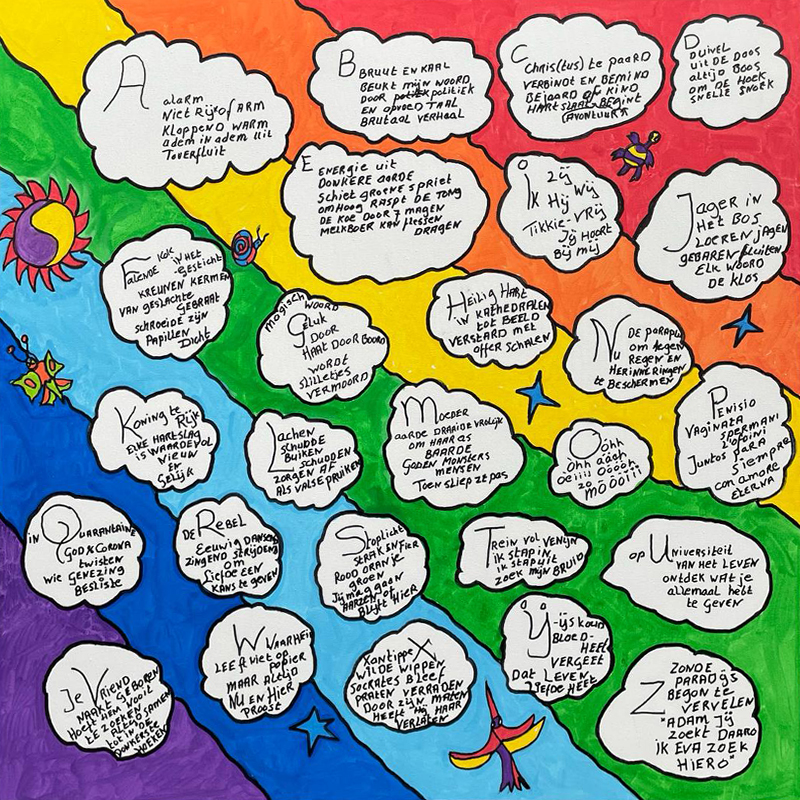 A
alarm
Niet Rijk of ARM
Kloppend WARM
adem in adem uit
Toverfluit
B
BRUUT EN KAAL
BEUKT mijn WOORD
DOOR politiek
EN opvoed TAAL
BRUTAAL VERHAAL
CHRIS(tus) te paard
VERBINDT EN BEMIND
Bejaard of kind
HARTSLAAT BEGINT
(AVONTUUR)
DUIVEL
uit DE DOOS
altijd BOOS
OM DE HOEK
SNELLE SNOEK
ENERGIE uit
DONKERE aarde
Schiet groene spriet
omhoog RASPT DE TONG
DE KOE DOOR 7 MAGEN
MELKBOER KAN FLESSEN
DRAGEN
ZIJ
IK Hij Wij
Tikkie-VRIJ
Jij Hoort
Bij mij
JAGER IN
HET BOS
LOEREN JAGEN
GEBAREN fluiten
ELK WOORD
DE KLOS
FALENDE KOK
IN HET
gesticht
KREUNEN KERMEN
VAN geslachte
GEBRAAT
schroeide zijn
PAPILLEN
Dicht
Magisch WOORD
GELUK
DOOR
HAAT DOOR BOORD
WORDT
stilletjes
VERMOORD
HEILIG HART
in KATHEDRALEN
tot BEELD
VERSTARD MET
offer SCHALEN
NU DE PARAPLU
om tegen
REGEN EN
HERINNERINGEN
te BESCHERMEN
KONING te
Rijk
ELKE HARTSLAG
IS WAARDEVOL
Nieuw
Er
Gelijk
LACHEN
schudde
BUIKEN
schudden
ZORGEN AF
ALS VALSE PRUIKEN
MOEDER
aarde DRAAIDE VROLIJK
om HAAR as
BAARDE
GODEN MONSTERS
MENSEN
TOEN SLIEP ZE PAS
Oohh
Ohh aaah
oeiiii Ooooh
zo
MOOiii
PENISIO
VAGINATA
SPERMANI
L'opini
Juntos PARA
Siempre
con amore
ETERNA
IN QUARANTAINE
GOD & CORONA
twisten
wie GENEZING
BESLISTE
DE REBEL
Eeuwig DANSEND
ZINGEND STRIJDEND
om
Liefde EEN
KANS te geven
STOPLICHT
STRAK EN FIER
ROOD ORANJE
groen
Jij mag gaan
HARZEN of
Blijft HIER
TREIN vol VENIJN
ik STAP in
ik STAP uit
ZOEK mijn BRUID
op UNIVERSITEIT
VAN HET LEVEN
ONTDEK WAT je
allemaal hebt
te GEVEN
IJ-ijskoud
BLOED-
HEET
VERGEET
Dat LEVEN
Liefde HEET
Je VRIEND
NAAKT GEBOREN
Hoeft HEM nooit
te ZOEKEN
ALTIJD SAMEN
tot in DE
DONKERSTE
HOEKEN
WAARHEID
LEEft niet op
papier
MAAR altijd
NU EN HIER
PROOST
XANTIPPE
WILDE WIPPEN
SOCRATES BLEEF
PRATEN VERRADEN
DOOR zijn MATEN
HEEFT Hij HAAR
VERLATEN
ZONDE
PARADIJS
BEGON te
VERVELEN
"ADAM Jij
ZOEKT DAARO
IK EVA ZOEK
HIERO"